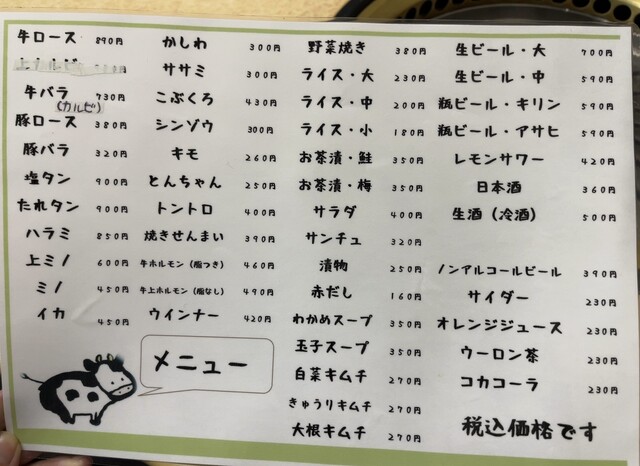 牛ロース 890円
牛バラ 730円
(カルビ)
豚ロース 380円
豚バラ 320円
塩タン 900円
たれタン 900円
ハラミ 850円
上ミノ 600円
ミノ 450円
イカ 450円
かしわ 300円
ササミ 300円
こぶくろ 430円
シンゾウ 300円
キモ 260円
とんちゃん 250円
トントロ 400円
焼きせんまい 390円
牛ホルモン(脂つき) 460円
牛上ホルモン(脂なし) 490円
ウインナー 420円
メニュー
野菜焼き 380円
ライス・大 230円
ライス・中 200円
ライス・小 180円
お茶漬・鮭 350円
お茶漬・梅 350円
サラダ 400円
サンチュ 320円
漬物 250円
赤だし 160円
わかめスープ 350円
玉子スープ 350円
白菜キムチ 270円
きゅうりキムチ 270円
大根キムチ 270円
生ビール・大 700円
生ビール・中 590円
瓶ビール・キリン 590円
瓶ビール・アサヒ 590円
レモンサワー 420円
日本酒 360円
生酒(冷酒) 500円
ノンアルコールビール 390円
サイダー 230円
オレンジジュース 230円
ウーロン茶 230円
コカコーラ 230円
税込価格です